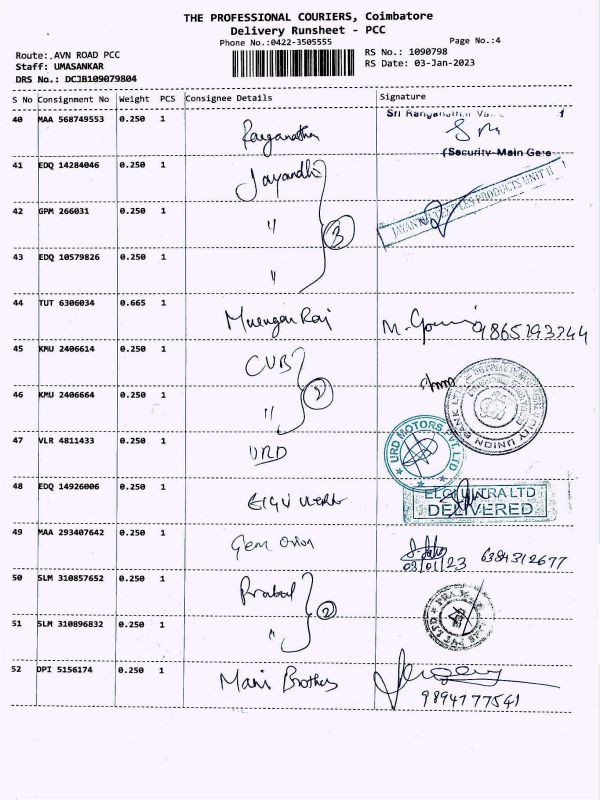 THE PROFESSIONAL COURIERS, Coimbatore
Delivery Runsheet - PCC
Phone No.:0422-3505555
Page No.:4
Route: AVN ROAD PCC
RS No.: 1090798
Staff: UMASANKAR
RS Date: 03-Jan-2023
DRS No.: DCJB109079804
S No Consignment No Weight PCS Consignee Details Signature
40 MAA 568749553 0.250 1 Ranganathan
(Security-Main Gate
41 EDQ 14284046 0.250 1 Jayandhi
42 GPM 266031 0.250 1 " 3
43 EDQ 10579826 0.250 1 "
44 TUT 6306034 0.665 1 Murugan Raj M. Gowri 9865193244
45 KMU 2406614 0.250 1 CUB
46 KMU 2406664 0.250 1 " 2
CITY UNION BANK LTD
47 VLR 4811433 0.250 1 URD
URD MOTORS PVT LTD
48 EDQ 14926006 0.250 1 Elgi
LTD
DELIVERED
49 MAA 293407642 0.250 1 Gem
03/01/23 6384312677
50 SLM 310857652 0.250 1
51 SLM 310896832 0.250 1 " 2
52 DPI 5156174 0.250 1 Mani Brothers
9894177541